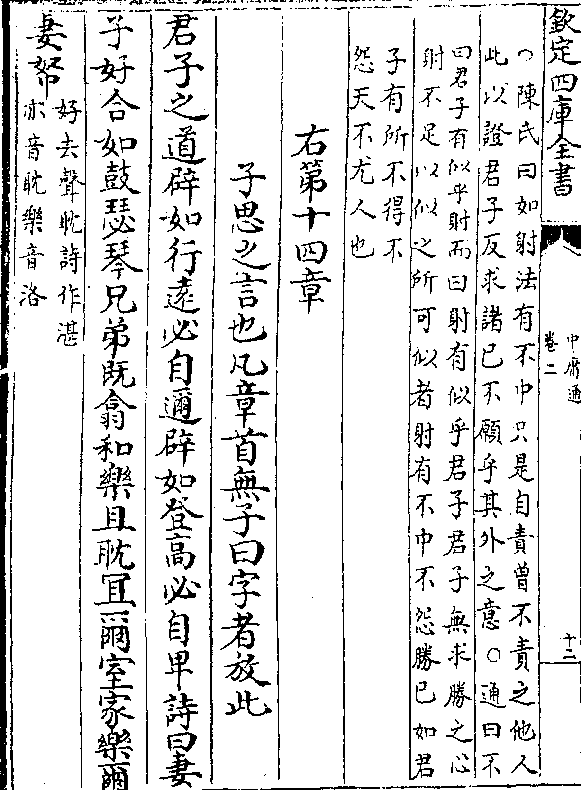 欽定四庫全書
中庸通
卷二
十二
○陳氏曰如射法有不中只是自責曾不責之他人
此以證君子反求諸已不願乎其外之意○通曰不
曰君子有似乎射而曰射有似乎君子君子無求勝之心
射不足以似之所可似者射有不中不怨勝已如君
子有所不得不
怨天不尤人也
右第十四章
子思之言也凡章首無子曰字者放此
君子之道辟如行逺必自邇辟如登高必自卑詩曰妻
子好合如鼓瑟琴兄弟既翕和樂且耽宜爾室家樂爾
妻帑
好去聲耽詩作湛
亦音耽樂音洛